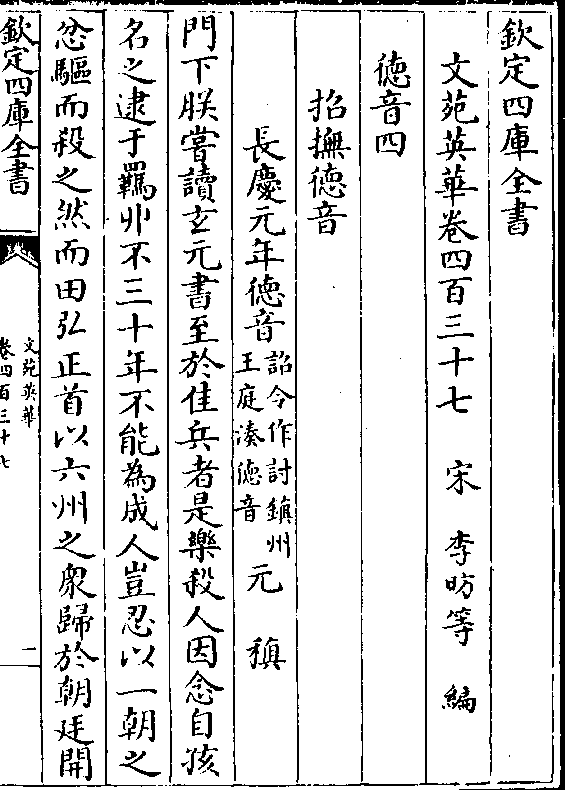 欽定四庫全書
文苑英華卷四百三十七　宋　李昉等　編
徳音四
招撫徳音
長慶元年徳音詔令作討鎮州王庭湊徳音　元稹
門下朕嘗讀玄元書至於佳兵者是樂殺人因念自孩
名之逮于羈丱不三十年不能為成人豈忍以一朝之
忿驅而殺之然而田弘正首以六州之衆歸於朝廷開
欽定四庫全書
文苑英華
卷四百三十七
一